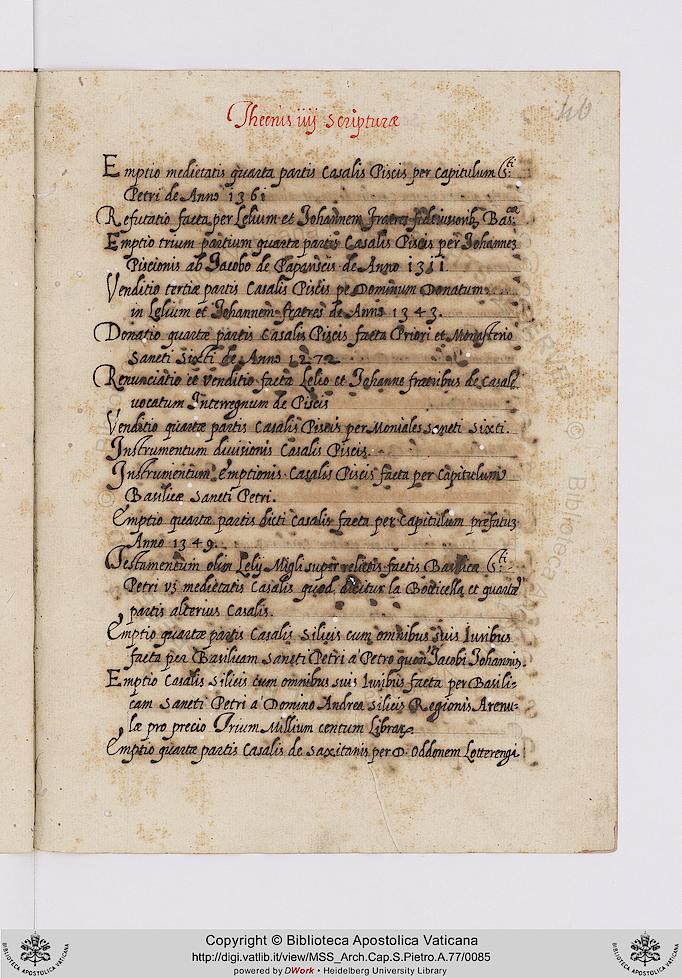 Thecnis iiij scripturæ
40
Emptio medietatis quarta partis Casalis Piscis per capitulum S.ti
Petri de Anno 1361
Refutatio facta per Lelium et Johannem fratres Bas.cæ
Emptio trium partium quartæ partis Casalis Piscis per Johannez
Piscionis ab Jacobo de Papanscis de Anno 1311
Venditio tertiæ partis Casalis Piscis pe Dominum Donatum
in Lelium et Johannem fratres de Anno 1343.
Donatio quartæ partis Casalis Piscis facta Priori et Monasterio
Sancti Sixti de Anno 1272
Renunciatio et venditio facta Lelio et Johanne fratribus de Casale
vocatum Interregnum de Piscis
Venditio quartæ partis Casalis Piscis per Moniales Sancti Sixti.
Instrumentum divisionis Casalis Piscis.
Instrumentum Emptionis Casalis Piscis facta per Capitulum
Basilicæ Sancti Petri.
Emptio quartæ partis dicti Casalis facta per Capitulum prefatuz
Anno 1349.
Testamentum olim Lelij Migli super relictis factis Basilica S.ti
Petri vz medietatis Casalis quod dicitur la Botticella et quartæ
partis alterius Casalis.
Emptio quartæ partis Casalis Silicis cum omnibus suis Iuribus
facta per Basilicam Sancti Petri a Petro quon Jacobi Johannis.
Emptio Casalis Silicis cum omnibus suis Iuribus facta per Basili=
cam Sancti Petri a Domino Andrea Silicis Regionis Arenu=
læ pro precio Trium Millium centum Librarz
Emptio quartæ partis Casalis de Saxitanis per D. Oddonem Lotterengi
Copyright © Biblioteca Apostolica Vaticana
http://digi.vatlib.it/view/MSS_Arch.Cap.S.Pietro.A.77/0085
powered by DWork • Heidelberg University Library